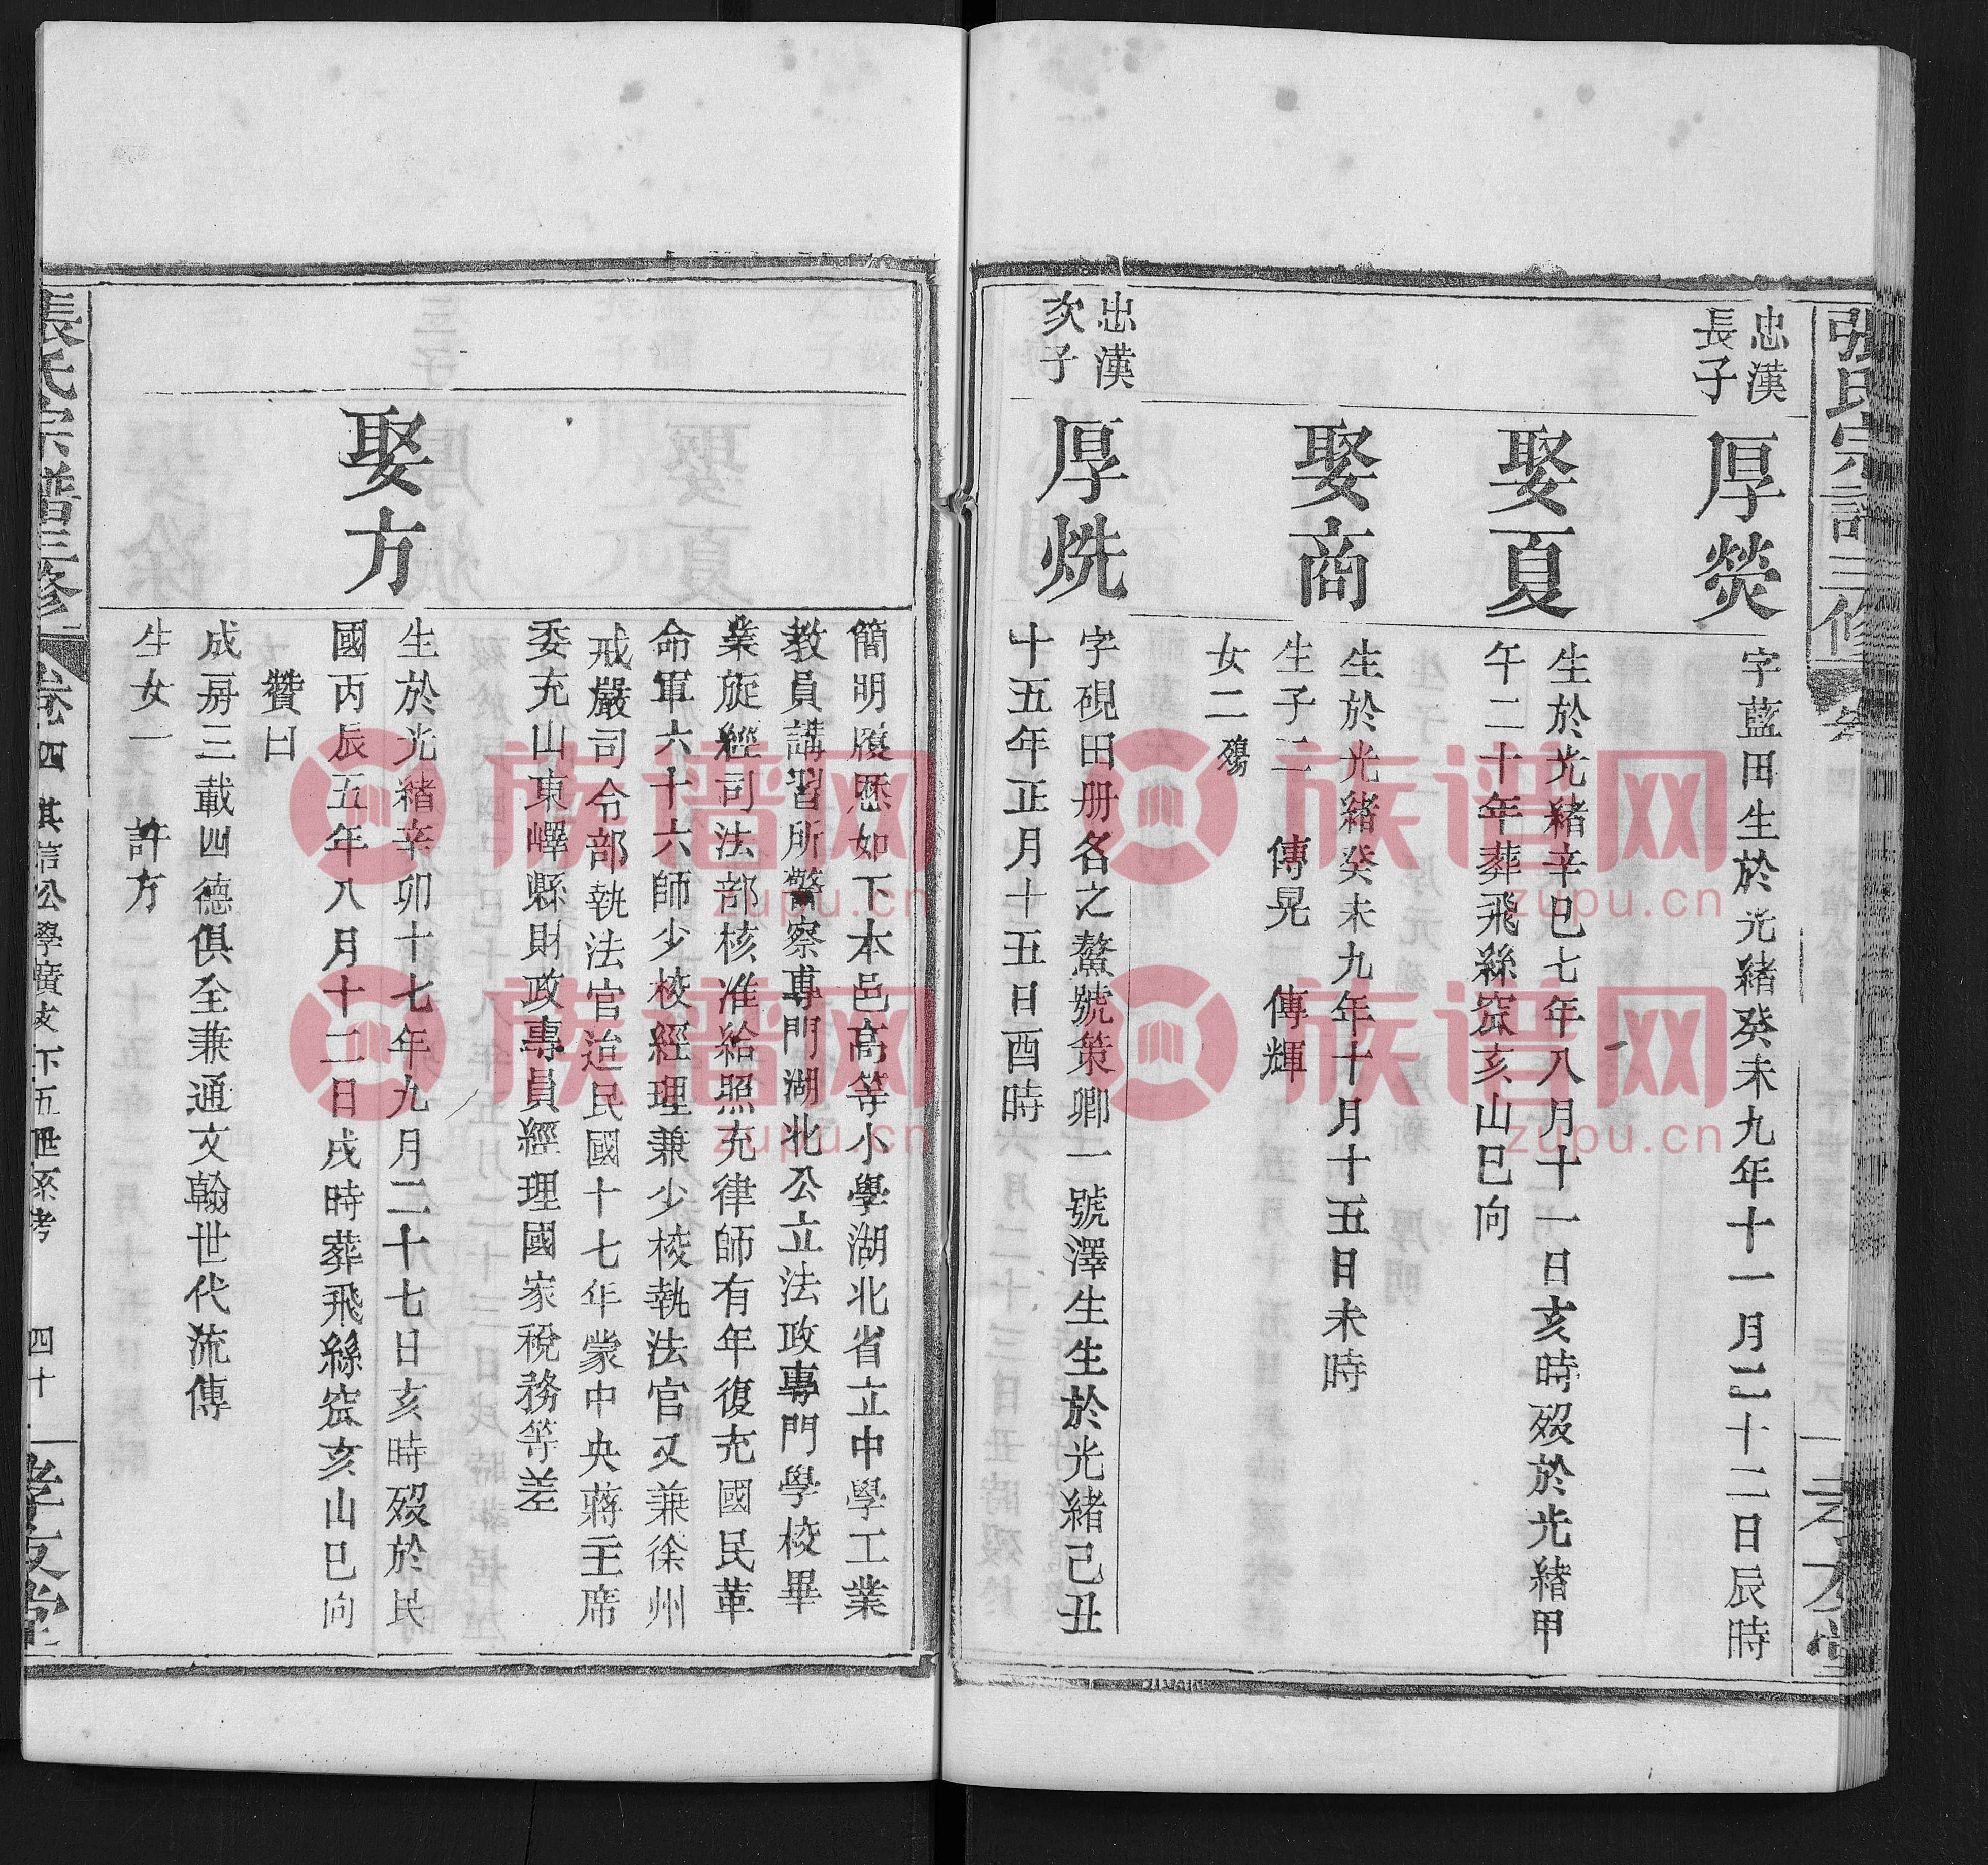 張氏宗譜三修
孝友堂
忠漢
長子
厚熒
字藍田生於光緒癸未九年十一月二十二日辰時
娶夏
生於光緒辛巳七年八月十一日亥時歿於光緒甲
午二十年葬飛絲窊亥山巳向
娶商
生於光緒癸未九年十月十五日未時
生子二 傳晃 傳輝
女二殤
忠漢
次子
厚烍
字硯田册名之鰲號策卿一號澤生生於光緒己丑
十五年正月十五日酉時
簡明履歷如下本邑高等小學湖北省立中學工業
教員講習所警察專門湖北公立法政專門學校畢
業旋經司法部核准給照充律師有年復充國民革
命軍六十六師少校經理兼少校執法官又兼徐州
戒嚴司令部執法官迨民國十七年蒙中央蔣主席
委充山東嶧縣財政專員經理國家稅務等差
娶方
生於光緒辛卯十七年九月二十七日亥時歿於民
國丙辰五年八月十二日戌時葬飛絲窊亥山巳向
贊曰
成房三載四德俱全兼通文翰世代流傳
生女一 許方
張氏宗譜三修
卷四 其信公學廣支下五世系考 四十
孝友堂
族谱网
zupu.cn
族谱网
zupu.cn
族谱网
zupu.cn
族谱网
zupu.cn